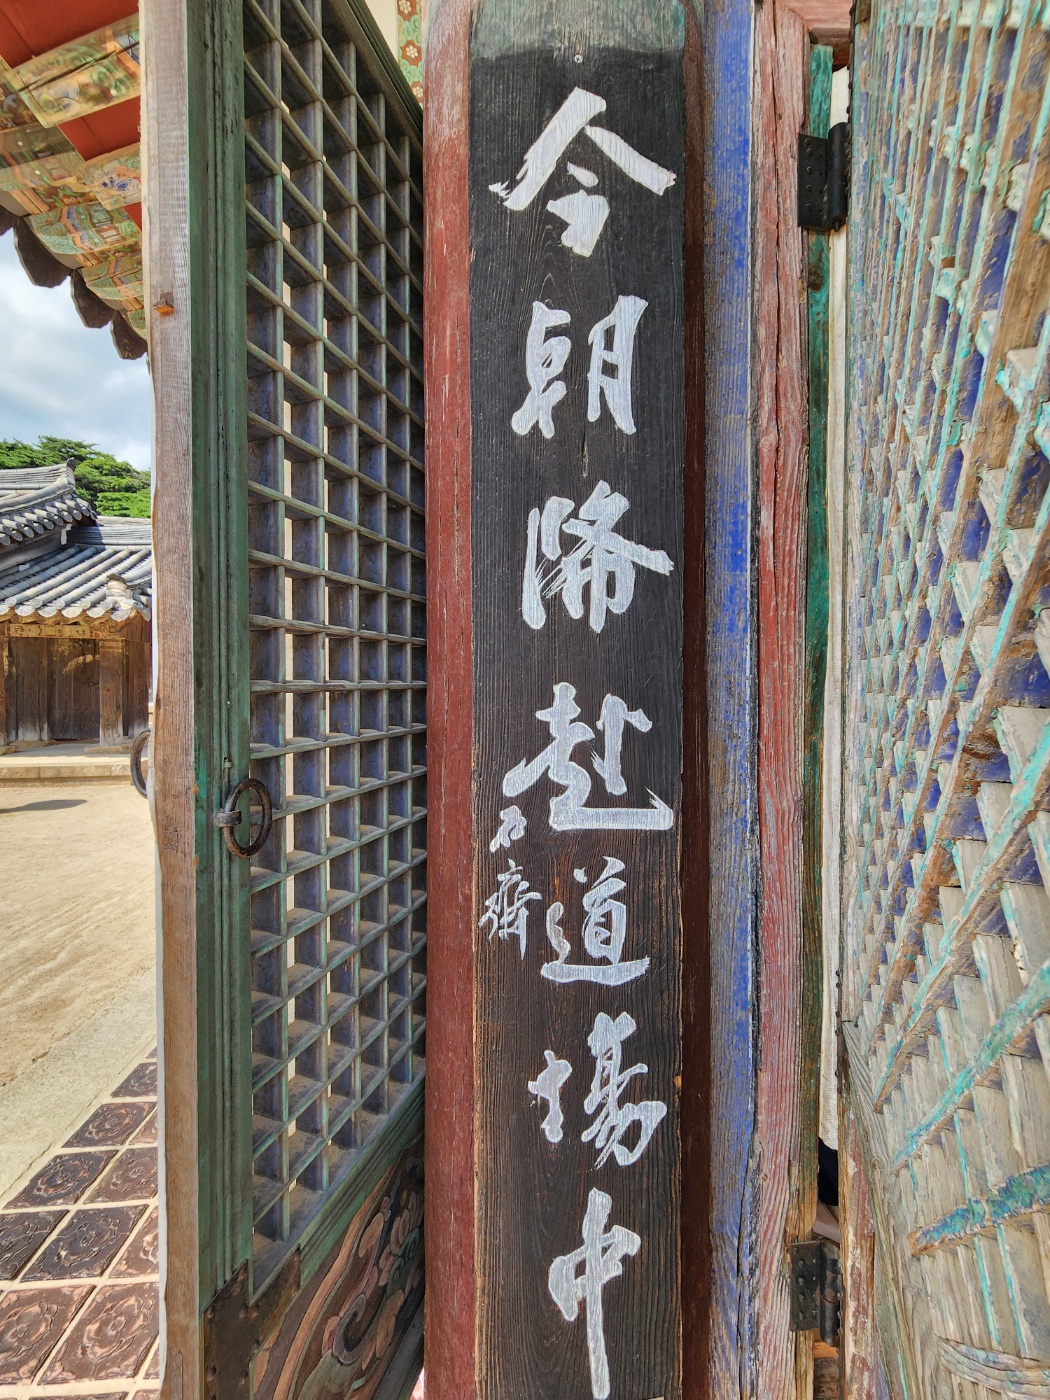 今朝降赴道場中
石齋